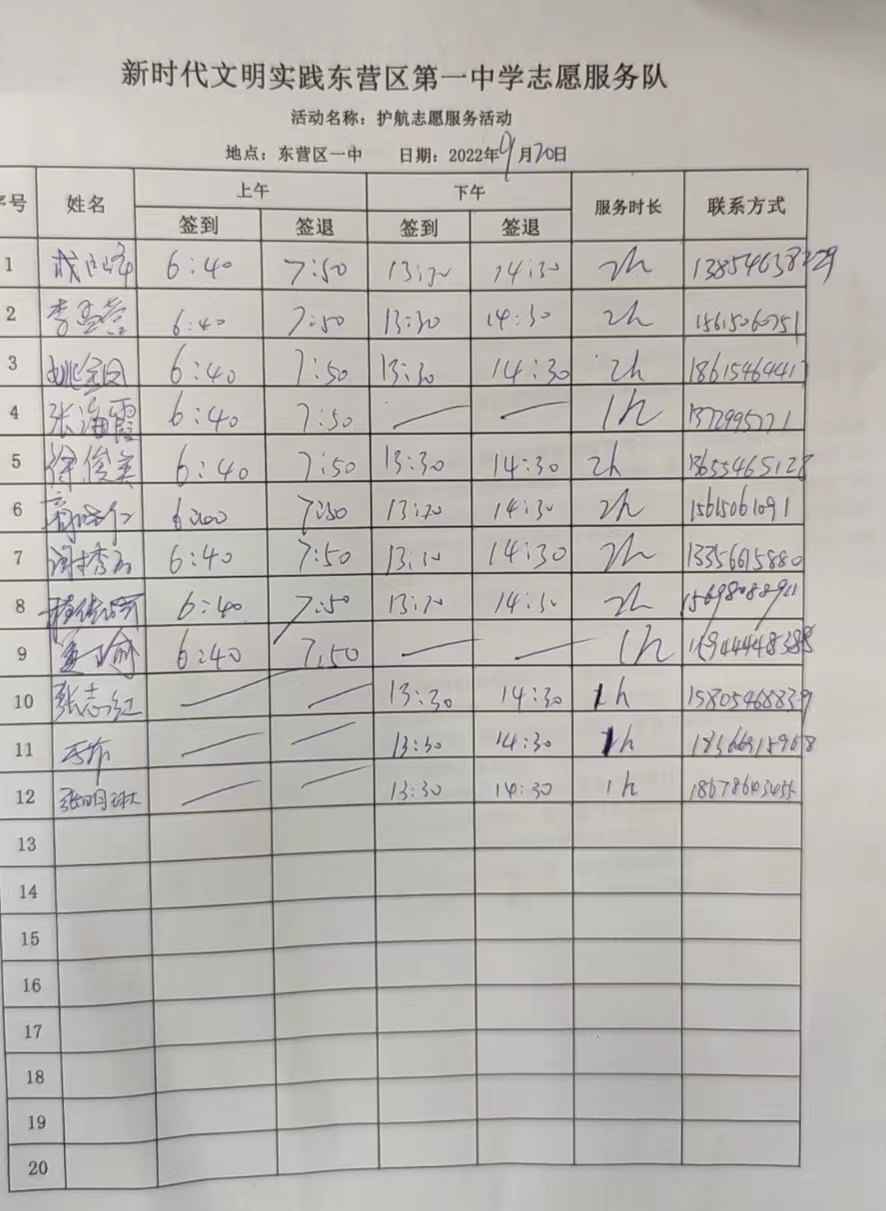 新时代文明实践东营区第一中学志愿服务队
活动名称：护航志愿服务活动
地点：东营区一中 日期：2022年9月20日
序号 姓名 上午 下午 服务时长 联系方式
签到 签退 签到 签退
1 6:40 7:50 14:30 2h
2 6:40 7:50 13:30 14:30 2h 15615060751
3 姚金凤 6:40 7:50 13:30 14:30 2h
4 张海霞 6:40 7:50 — — 1h
5 徐俊英 6:40 7:50 13:30 14:30 2h 13655465128
6 7:50 14:30 2h 15615061091
7 6:40 7:50 14:30 2h 13356615880
8 6:40 7:50 14:30 2h
9 6:40 7:50 — — 1h
10 张志红 — — 13:30 14:30 1h 15805468839
11 — — 13:30 14:30 1h
12 张明琳 — — 13:30 14:30 1h
13
14
15
16
17
18
19
20